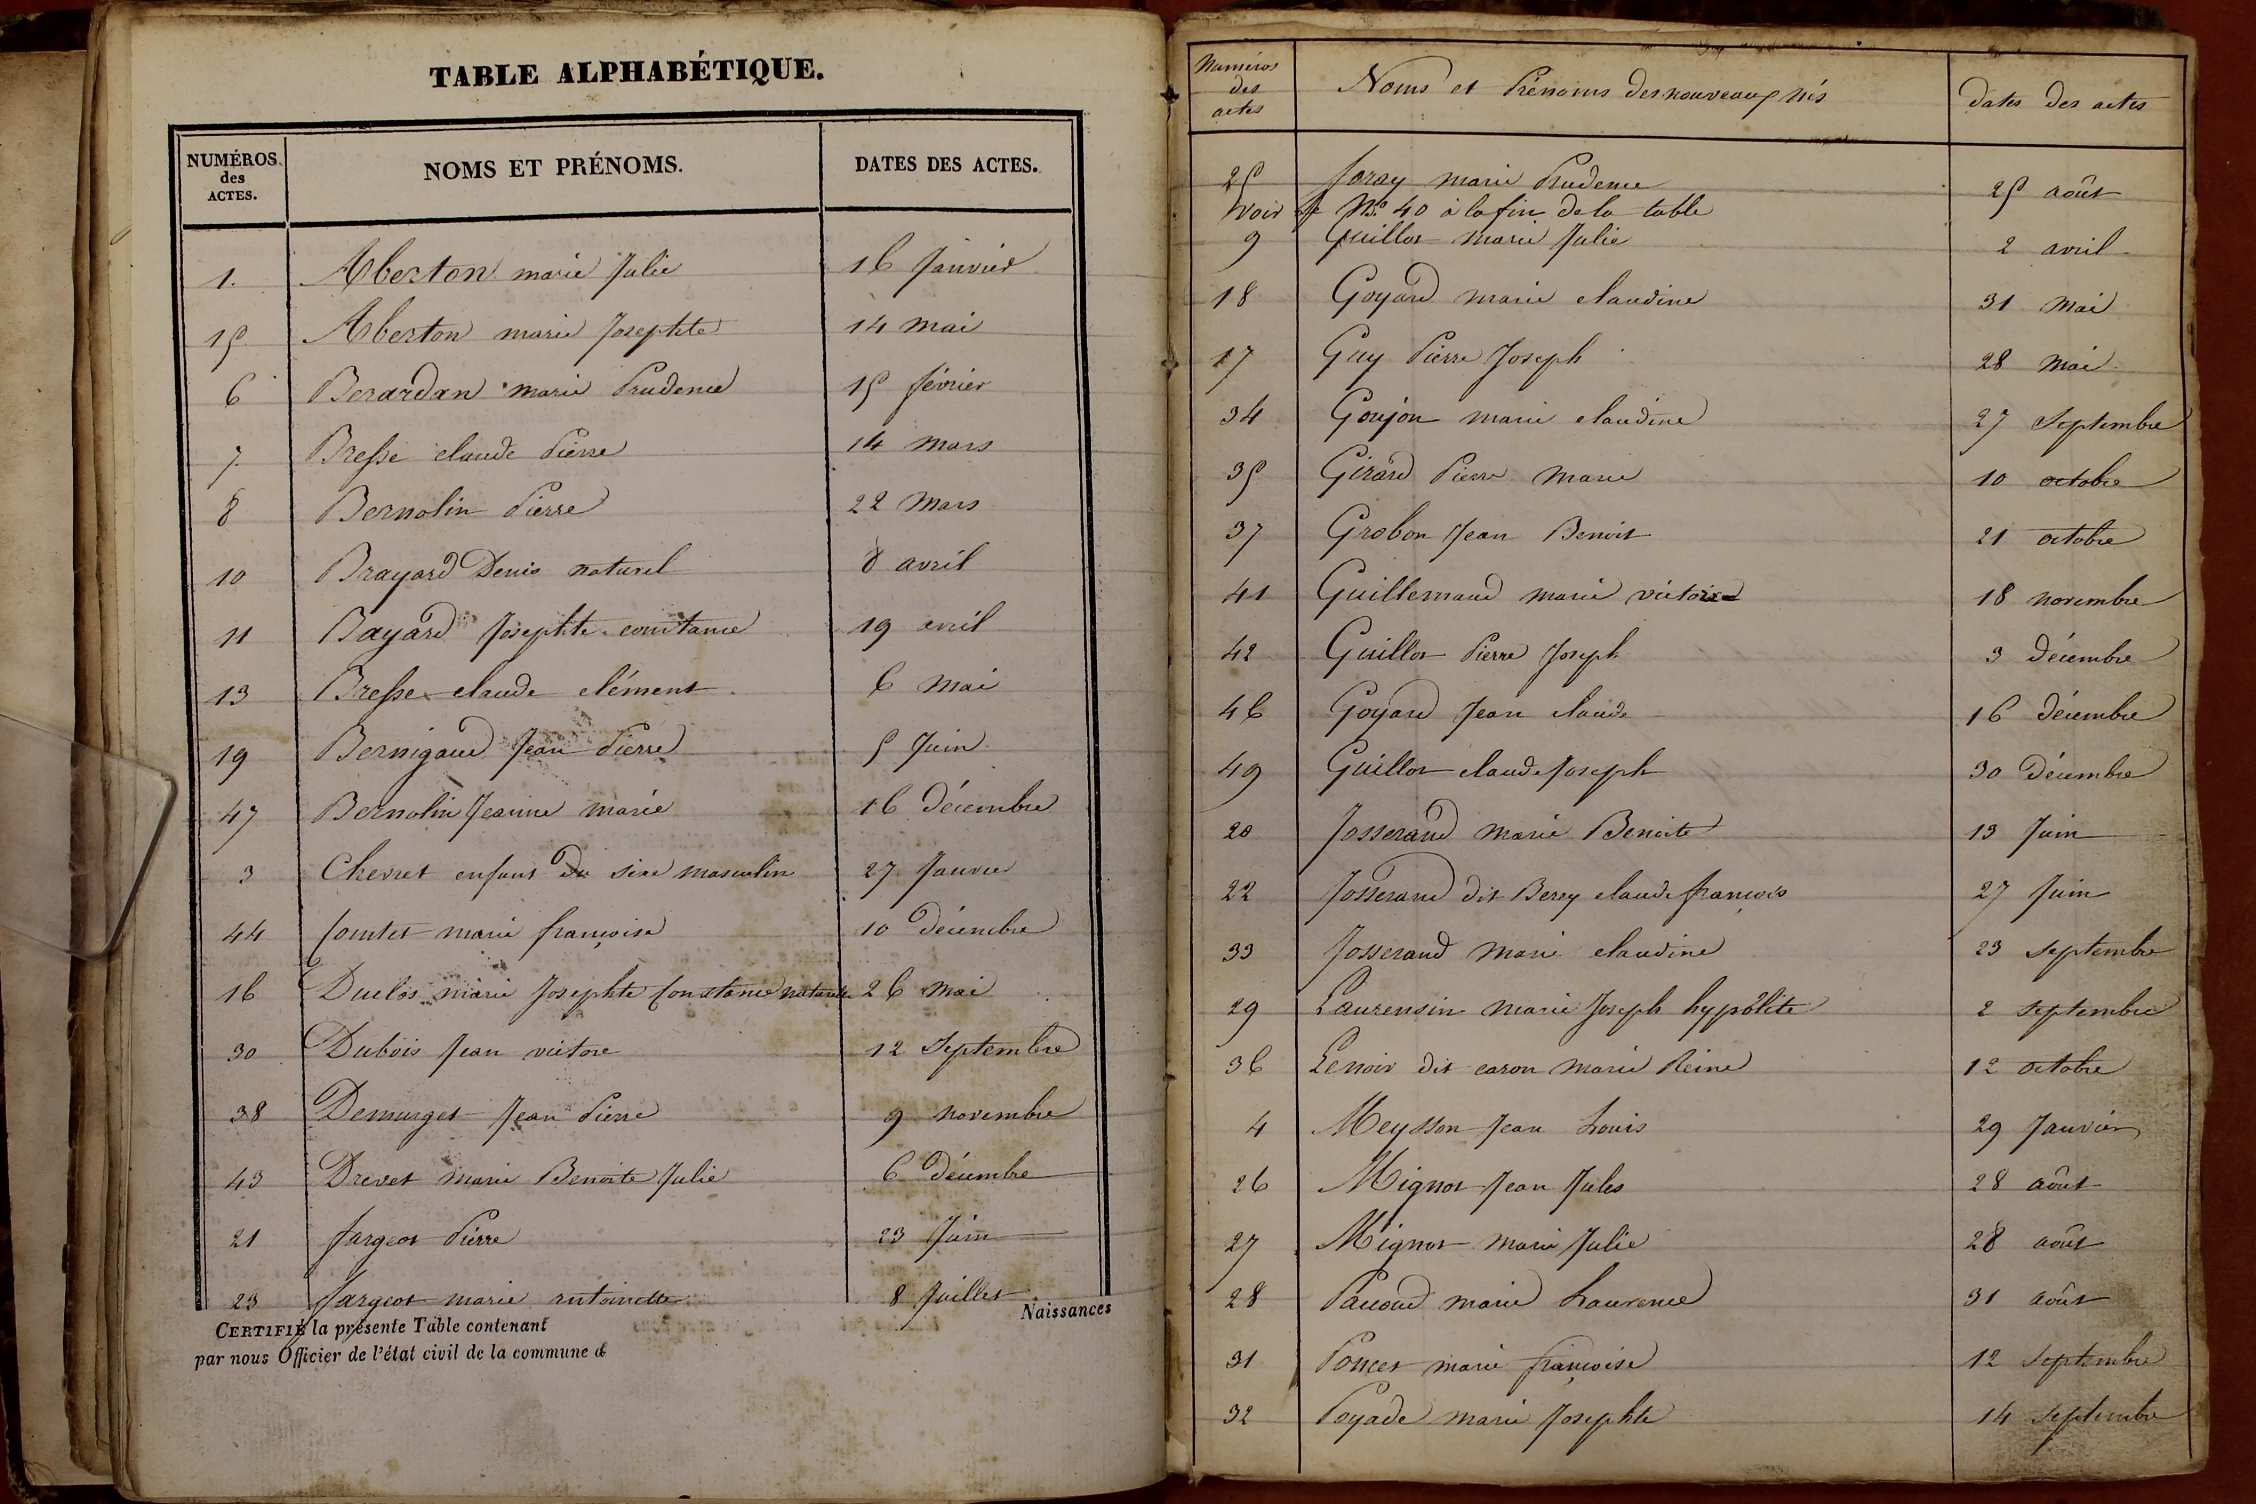 TABLE ALPHABÉTIQUE.
NUMÉROS des ACTES. NOMS ET PRÉNOMS. DATES DES ACTES.
1. Aberton marie Julie 16 Janvier
15 Aberton marie Josephte 14 mai
6 Berardan marie Prudence 15 février
7 Bresse claude Pierre 14 mars
8 Bernolin Pierre 22 mars
10 Brayard Denis naturel 8 avril
11 Bayard Josephte constance 19 avril
13 Bresse claude clément 6 mai
19 Bernigaud Jean Pierre 5 Juin
47 Bernolin Jeanne marie 16 Décembre
3 Chevret enfant du sexe masculin 27 Janvier
44 Comtet marie françoise 10 Décembre
16 Duclos marie Josephte Constance naturelle 26 mai
30 Dubois Jean victore 12 Septembre
38 Demurget Jean Pierre 9 novembre
43 Drevet marie Benoite Julie 6 Décembre
21 fargeot Pierre 23 Juin
23 fargeot marie antoinette 8 Juillet
CERTIFIÉ la présente Table contenant Naissances
par nous Officier de l'état civil de la commune d
Numéros des actes Noms et Prénoms des nouveaux nés dates des actes
25 foray marie Prudence 25 août
Voir le N° 40 à la fin de la table
9 Guillot marie Julie 2 avril
18 Goyard marie claudine 31 mai
17 Guy Pierre Joseph 28 mai
34 Goujon marie claudine 27 Septembre
35 Girard Pierre marie 10 octobre
37 Grobon Jean Benoit 21 octobre
41 Guillemaud marie victoire 18 novembre
42 Guillot Pierre Joseph 3 décembre
46 Goyard Jean claude 16 décembre
49 Guillot claude Joseph 30 Décembre
20 Josserand marie Benoite 13 Juin
22 Josserand dit Berry claude françois 27 Juin
33 Josserand marie claudine 23 septembre
29 Laurensin marie Joseph hypolite 2 septembre
36 Lenoir dit caron marie Reine 12 octobre
4 Meysson Jean Louis 29 Janvier
26 Mignot Jean Jules 28 août
27 Mignot marie Julie 28 août
28 Pacoud marie Laurence 31 août
31 Poncet marie françoise 12 septembre
32 Poyade marie Josephte 14 septembre